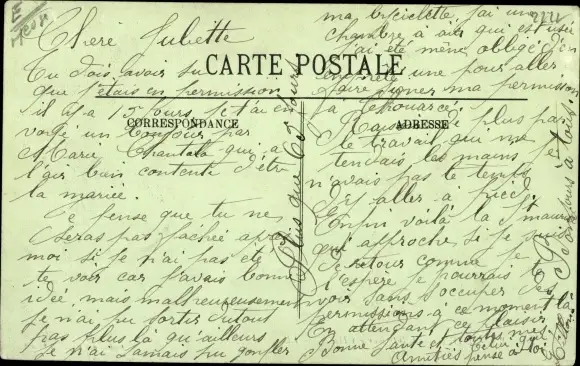 Chère Juliette
CARTE POSTALE
CORRESPONDANCE
ADRESSE
Tu dois avoir su
que j'étais en permission
il y a 15 jours je t'ai en
voyé un bonjour par
Marie qui a
l'air bien contente d'être
la mariée.
Je pense que tu ne
seras pas fachée après
moi si je n'ai pas été
te voir car j'avais bonne
idée, mais malheureusement
je n'ai pu sortir du tout
pas plus là qu'ailleurs
je n'ai jamais pu gonfler
ma bicyclette j'ai une
chambre à air qui est usée
j'ai été même obligé d'en
une pour aller
faire signer ma permission
à
Raison de plus pas
le travail qui me
tendais les mains
n'avais pas le temps
d'y aller à pied.
Enfin voilà la St
qui approche si je suis
de retour comme je
l'espère je pourrais
voir sans s'occuper des
permissions à ce moment là
En attendant ce plaisir
Bonne santé et toutes mes
Amitiés
celui qui
pense à toi
Plus que 60 jours
Bonjours à tous.